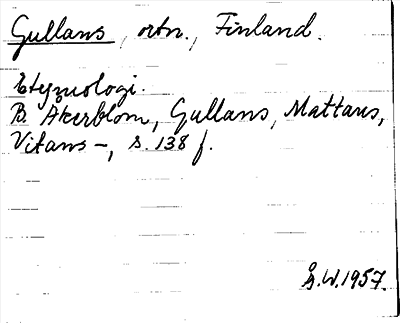 Gullans, ortn., Finland.
Etymologi.
B. Åkerblom, Gullans, Mattans,
Vitans –, s. 138 f.
Å.W. 1957.